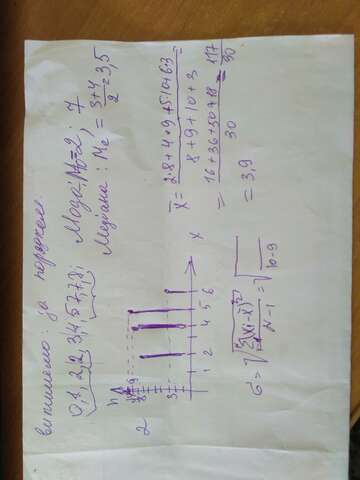 випишемо: за порядком.
0, 1, 2, 2, 3, 4, 5, 7, 7, 7; Мода: Mo=2; 7
Медіана: Me = (3+4)/2 = 3,5
2
n
10
9
8
3
1 2 4 5 6 x
x̄ = (2·8+4·9+5·10+6·3)/(8+9+10+3) =
= (16+36+50+18)/30 = 117/30
= 3,9
σ = √(Σ(xi-x̄)²/(N-1)) = √( /(10-9))